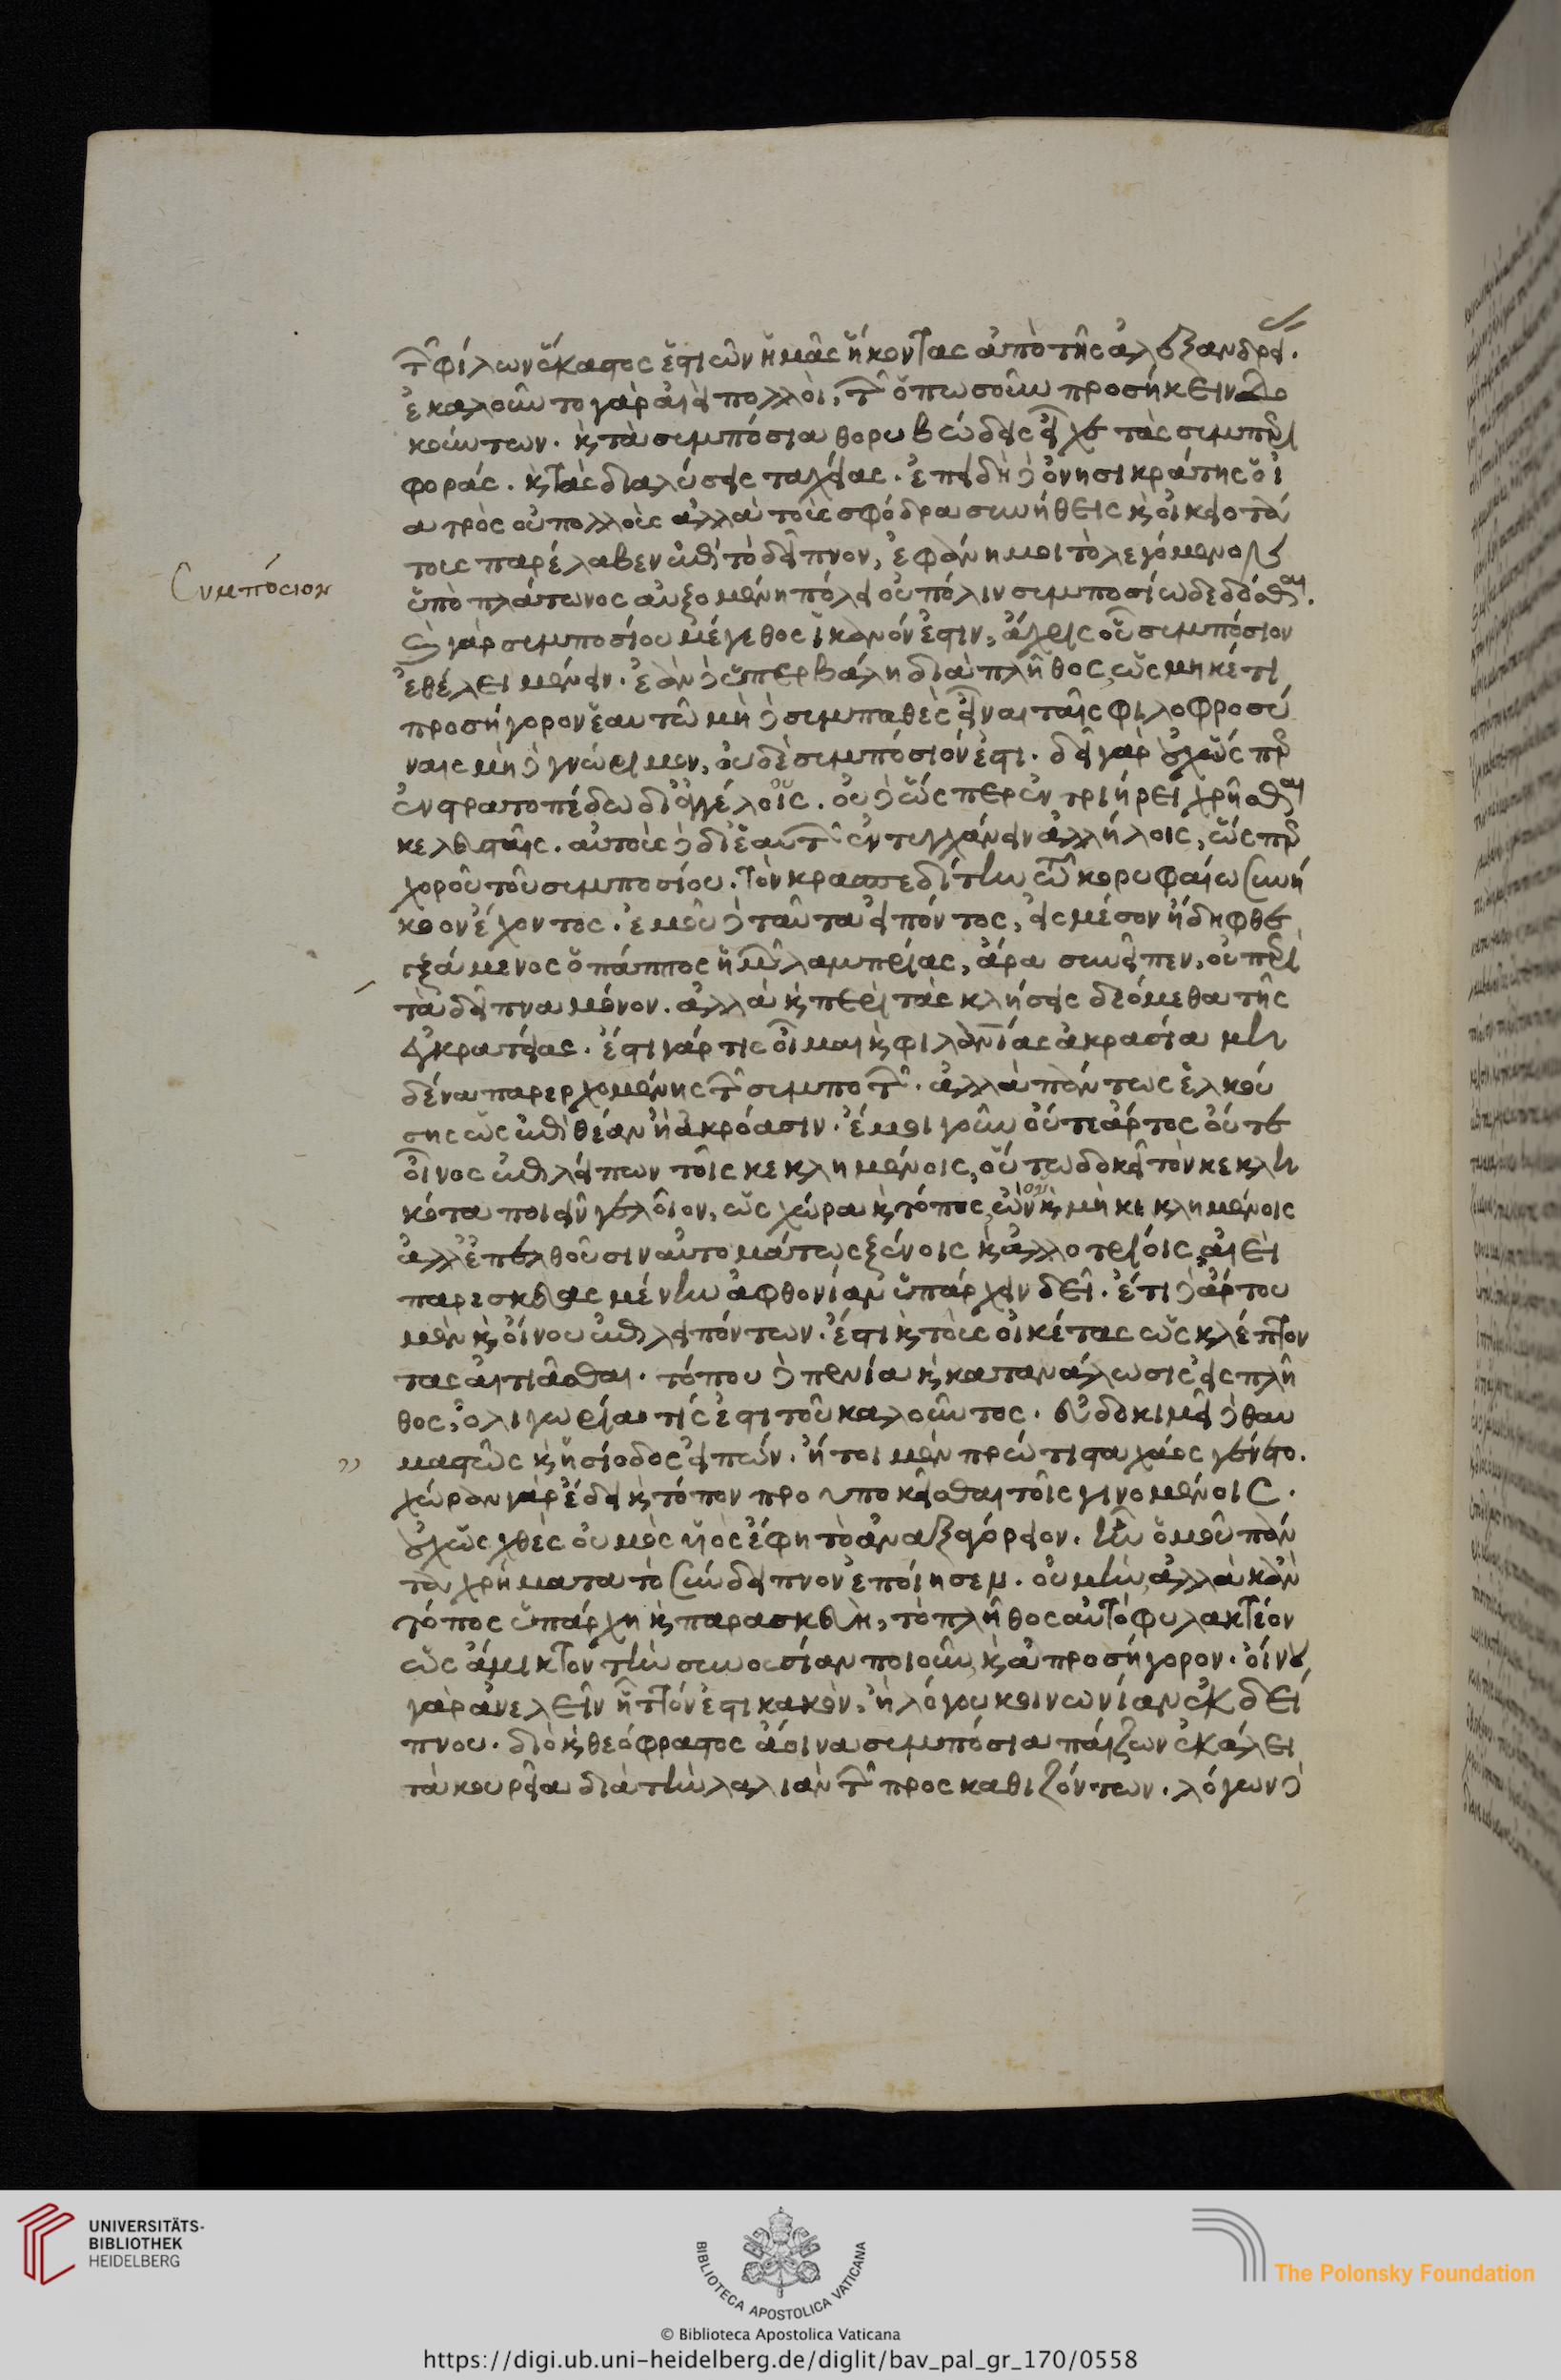 τῶν φίλων ἕκαστος ἑστιῶν ἡμᾶς ἥκοντας ἀπὸ τῆς ἀλεξανδρεί.
ἐκαλοῦντο γὰρ ἀεὶ πολλοὶ, τῶν ὁπωσοῦν προσήκειν δο
κούντων. καὶ τὰ συμπόσια θορυβώδεις εἶχε τὰς συμπερι
φοράς. καὶ τὰς διαλύσεις ταχείας. ἐπειδὴ δὲ ὀνησικράτης ὁ ἰ
ατρὸς οὐ πολλοὺς ἀλλὰ τοὺς σφόδρα συνήθεις καὶ οἰκειοτά
τους παρέλαβεν ἐπὶ τὸ δεῖπνον, ἐφάνη μοι τὸ λεγόμενον
Συμπόσιον
ὑπὸ πλάτωνος αὐξομένη πόλει οὐ πόλιν συμποσίω δεδόσθαι.
καὶ γὰρ συμποσίου μέγεθος ἱκανόν ἐστιν, ἄχρις οὗ συμπόσιον
ἐθέλει μένειν. ἐὰν δὲ ὑπερβάλη διὰ πλῆθος, ὡς μηκέτι
προσήγορον ἑαυτῶ μὴ δὲ συμπαθὲς εἶναι ταῖς φιλοφροσύ
ναις μὴ δὲ γνώριμον, οὐδὲ συμπόσιόν ἐστι. δεῖ γὰρ οὐχ ὥσπερ
ἐν στρατοπέδω διαγγέλοις. οὐ δὲ ὥσπερ ἐν τριήρει χρῆσθαι
κελευσταῖς. αὐτοὺς δὲ δι' ἑαυτῶν ἐντυγχάνειν ἀλλήλοις, ὥσπερ
χοροῦ τοῦ συμποσίου. τὸν κρασπεδίτην τῶ κορυφαίω συνή
κοον ἔχοντος. ἐμοῦ δὲ ταῦτα εἰπόντος, εἰς μέσον ἤδη φθε
γξάμενος ὁ πάππος ἡμῶν λαμπρίας, ἆρα συνεῖπεν, οὐ περὶ
τὰ δεῖπνα μόνον. ἀλλὰ καὶ περὶ τὰς κλήσεις δεόμεθα τῆς
ἐγκρατείας. ἔστι γάρ τις οἶμαι καὶ φιλανθρωπίας ἀκρασία μη
δένα παρερχομένης τῶν συμποτῶν. ἀλλὰ πάντως ἑλκού
σης ὡς ἐπὶ θέαν ἢ ἀκρόασιν. ἐμοὶ γοῦν οὔτε ἄρτος οὔτε
οἶνος ἐπιλείπων τοῖς κεκλημένοις, οὕτω δοκεῖ τὸν κεκλη
κότα ποιεῖν γελοῖον, ὡς χώρα καὶ τόπος, ὧν καὶ μὴ κεκλημένοις
ἀλλ' ἐπελθοῦσιν αὐτομάτως ξένοις καὶ ἀλλοτρίοις, ἀεὶ
παρεσκευασμένην ἀφθονίαν ὑπάρχειν δεῖ. ἔτι δὲ ἄρτου
μὲν καὶ οἴνου ἐπιλειπόντων. ἔστι καὶ τοὺς οἰκέτας ὡς κλέπτον
τας αἰτιᾶσθαι. τόπου δὲ πενία καὶ κατανάλωσις εἰς πλῆ
θος, ὀλιγωρία τίς ἐστι τοῦ καλοῦντος. εὐδοκιμεῖ δὲ θαυ
μαστῶς καὶ ἡσίοδος εἰπών. ἤτοι μὲν πρώτιστα χάος γένετο.
χώραν γὰρ ἔδει καὶ τόπον προυποκεῖσθαι τοῖς γινομένοις.
οὐχ ὡς χθὲς οὑμὸς υἱὸς ἔφη τὸ ἀναξαγόρειον. ἦν ὁμοῦ πάν
τα χρήματα τὸ σύνδειπνον ἐποίησεν. οὐ μὴν ἀλλὰ κἂν
τόπος ὑπάρχη καὶ παρασκευὴ, τὸ πλῆθος αὐτὸ φυλακτέον
ὡς ἄμικτον τὴν συνουσίαν ποιοῦν, καὶ ἀπροσήγορον. οἴνου
γὰρ ἀνελεῖν ἧττόν ἐστι κακὸν, ἢ λόγου κοινωνίαν ἐκ δεί
πνου. διὸ καὶ θεόφραστος ἄοινα συμπόσια παίζων ἐκάλει
τὰ κουρεῖα διὰ τὴν λαλιὰν τῶν προσκαθιζόντων. λόγων δὲ
UNIVERSITÄTS-
BIBLIOTHEK
HEIDELBERG
BIBLIOTECA APOSTOLICA VATICANA
The Polonsky Foundation
© Biblioteca Apostolica Vaticana
https://digi.ub.uni-heidelberg.de/diglit/bav_pal_gr_170/0558